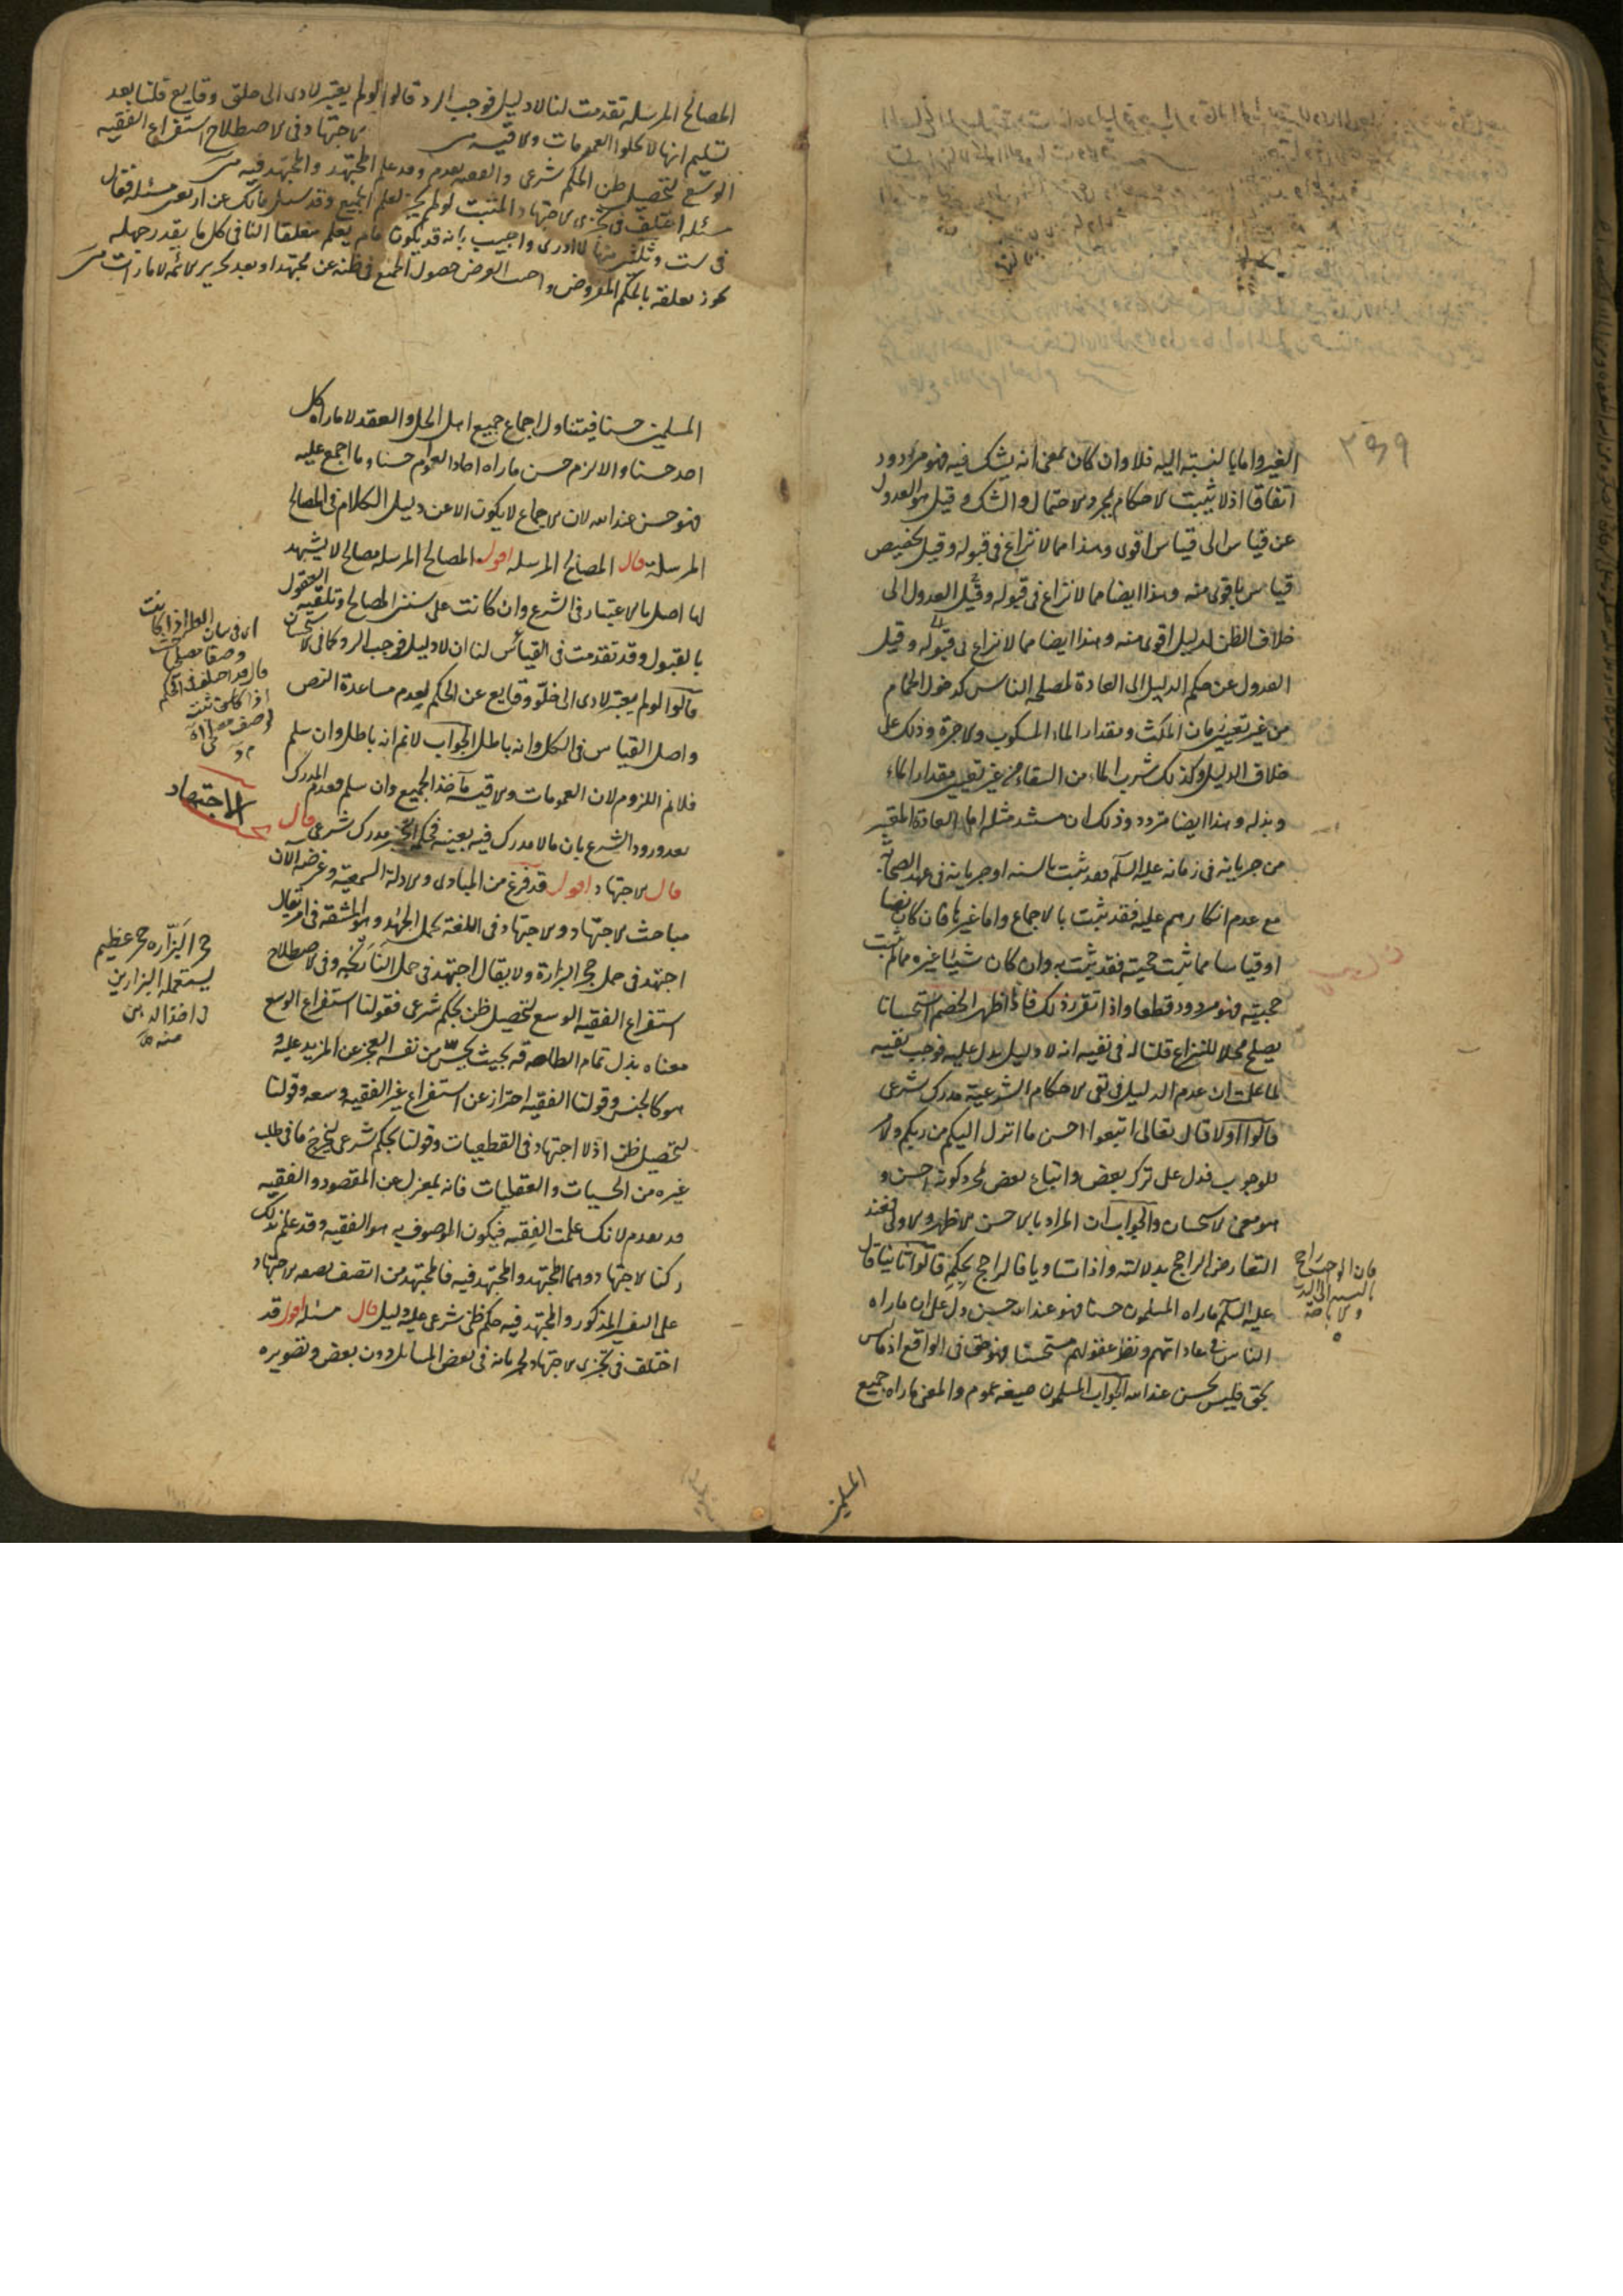 ٢٥٩
الغير واما بالنسبة اليه فلا وان كان بمعنى انه يشك فيه فهو مردود
اتفاقا اذ لا يثبت الاحكام بمجرد الاحتمال والشك وقيل هو العدول
عن قياس الى قياس اقوى وهذا مما لا نزاع فى قبوله وقيل تخصيص
قياس باقوى منه وهذا ايضا مما لا نزاع فى قبوله وقيل العدول الى
خلاف الظن لدليل اقوى منه وهذا ايضا مما لا نزاع فى قبوله وقيل
العدول عن حكم الدليل الى العادة لمصلحة الناس كدخول الحمام
من غير تعيين زمان المكث ومقدار الماء المسكوب والاجرة وذلك على
خلاف الدليل وكذلك شرب الماء من السقاء من غير تعيين مقدار الماء
وبذله وهذا ايضا متردد وذلك ان مستند مثله اما العادة المعتبر
من جريانه فى زمانه عليه السلم فقد ثبت بالسنه او جريانه فى عهد الصحابة
مع عدم انكارهم عليه فقد ثبت بالاجماع واما غيرها فان كان نصا
او قياسا مما ثبت حجيته فقد ثبت به وان كان شيئا غيره مما لم يثبت
حجيته فهو مردود قطعا واذا تقرر ذلك فاذا اظهر الخصم استحسانا
يصلح محلا للنزاع قلنا له فى نفيه انه لا دليل يدل عليه فوجب نفيه
لما علمت ان عدم الدليل فى نفى الاحكام الشرعية مدرك شرعى
قالوا اولا قال تعالى اتبعوا احسن ما انزل اليكم من ربكم والامر
للوجوب فدل على ترك بعض واتباع بعض بمجرد كونه احسن و
هو معنى الاستحسان والجواب ان المراد بالاحسن الاظهر والاولى فعند
التعارض الراجح بدلالته واذا تساويا فالراجح بحكمه قالوا ثانيا قال
عليه السلم ما راه المسلمون حسنا فهو عند الله حسن دل على ان ما راه
الناس فى عاداتهم ونظر عقولهم مستحسنا فهو حق فى الواقع اذ ما ليس
بحق فليس بحسن عند الله الجواب المسلمون صيغة عموم والمعنى ما راه جميع
المسلمين
المصالح المرسله تقدمت لنا لا دليل فوجب الرد قالوا لو لم يعتبر لادى الى خلو وقايع قلنا بعد
تسليم انها لا تخلوا العمومات والاقيسه الاجتهاد فى الاصطلاح استفراغ الفقيه
الوسع لتحصيل ظن بحكم شرعى والفقيه تقدم وقد علم المجتهد والمجتهد فيه
مسئله اختلف فى تجزى الاجتهاد المثبت لو لم يتجز لعلم الجميع وقد سئل مالك عن اربعين مسئلة فقال
فى ست وثلثين منها لا ادرى واجيب بانه قد يكون ما لم يعلم متعلقا النافى كل ما يقدر جهله
يجوز تعلقه بالحكم المفروض واجيب الفرض حصول الجميع فى ظنه عن مجتهد او بعد تحرير الائمه الامارات
المسلمين حسنا فيتناول اجماع جميع اهل الحل والعقد لا ما راه كل
احد حسنا والا لزم حسن ما راه احاد العوام حسنا وما اجمع عليه
فهو حسن عند الله لان الاجماع لا يكون الا عن دليل الكلام فى المصالح
المرسلة قال المصالح المرسله اقول المصالح المرسله مصالح لا يشهد
لها اصل بالاعتبار فى الشرع وان كانت على سنن المصالح وتلقته العقول
بالقبول وقد تقدمت فى القياس لنا ان لا دليل فوجب الرد كما فى الاستحسان
قالوا لو لم يعتبر لادى الى خلو وقايع عن الحكم لعدم مساعدة النص
واصل القياس فى الكل وانه باطل الجواب لا نم انه باطل وان سلم
فلا نم اللزوم لان العمومات والاقيسه مآخذ الجميع وان سلم فعدم المدرك
بعد ورود الشرع بان ما لا مدرك فيه بعينه فحكمه التخيير مدرك شرعى قال
الاجتهاد
قال الاجتهاد اقول قد فرغ من المبادى والادلة السمعية وغرضه الآن
مباحث الاجتهاد والاجتهاد فى اللغة تحمل الجهد وهو المشقة فى امر يقال
اجتهد فى حمل حجر البزارة ولا يقال اجتهد فى حمل النارنجه وفى الاصطلاح
استفراغ الفقيه الوسع لتحصيل ظن بحكم شرعى فقولنا استفراغ الوسع
معناه بذل تمام الطاقه بحيث يحس من نفسه العجز عن المزيد عليه و
هو كالجنس وقولنا الفقيه احتراز عن استفراغ غير الفقيه وسعه وقولنا
لتحصيل ظن اذ لا اجتهاد فى القطعيات وقولنا بحكم شرعى ليخرج ما فى طلب
غيره من الحسيات والعقليات فانه بمعزل عن المقصود والفقيه
قد تقدم لانك علمت الفقه فيكون الموصوف به هو الفقيه وقد علم بذلك
ركنا الاجتهاد وهما المجتهد والمجتهد فيه فالمجتهد من اتصف بصفة الاجتهاد
على التفسير المذكور والمجتهد فيه حكم ظنى شرعى عليه دليل قال مسئله اقول قد
اختلف فى تجزى الاجتهاد بجريانه فى بعض المسائل دون بعض وتصويره
حجر البزّاره حجر عظيم
يستعمله البزارين
فى اخذ الدهن
منه